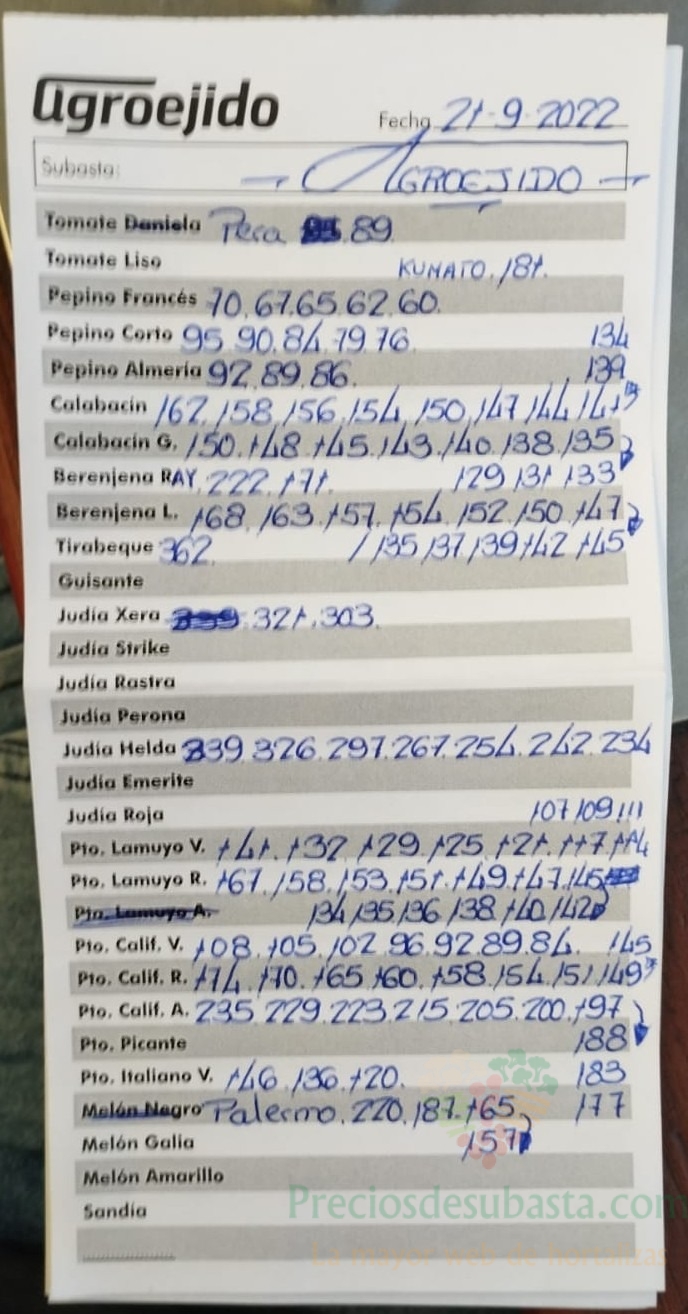 agroejido
Fecha 21-9-2022
Subasta: AGROEJIDO
Tomate Daniela Pera 89
Tomate Liso KUMATO. 181.
Pepino Francés 70.67.65.62.60.
Pepino Corto 95.90.84.79.76. 134
Pepino Almería 92.89.86. 139
Calabacín 162.158.156.154.150.147.144.141
Calabacín G. 150.148.145.143.140.138.135
Berenjena RAY. 222.171. 129 131 133
Berenjena L. 168.163.157.154.152.150.147
Tirabeque 362. 135 137 139 142 145
Guisante
Judía Xera 321.303.
Judía Strike
Judía Rastra
Judía Perona
Judía Helda 339.326.297.267.254.242.234
Judía Emerite
Judía Roja 107 109 111
Pto. Lamuyo V. 141.132.129.125.121.117.114
Pto. Lamuyo R. 167.158.153.151.149.147.145
Pto. Lamuyo A. 134 135 136 138 140 142
Pto. Calif. V. 108.105.102.96.92.89.84. 145
Pto. Calif. R. 174.170.165.160.158.154.151.149
Pto. Calif. A. 235.229.223.215.205.200.197
Pto. Picante 188
Pto. Italiano V. 146.136.120. 183
Melón Negro Palermo. 220.187.165. 177
Melón Galia 157
Melón Amarillo
Sandía
Preciosdesubasta.com
La mayor web de hortalizas